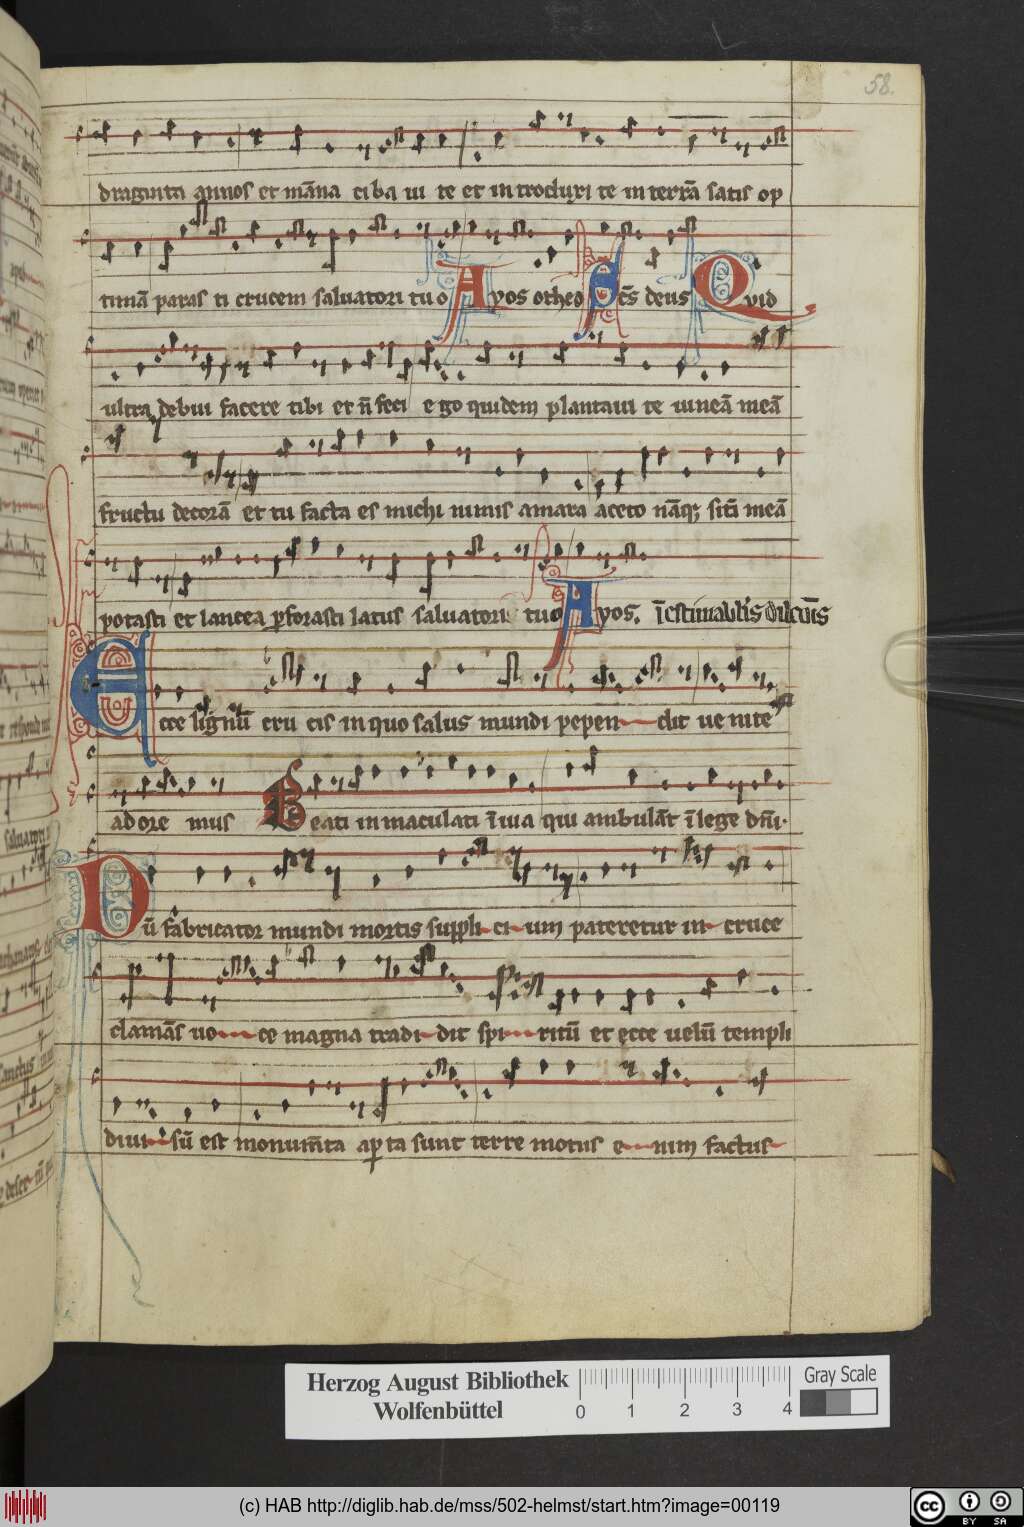 58.
draginta annos et māna ciba ui te et introduxi te in terrā satis op
timā paras ti crucem saluatori tuo Ayos otheo Scs̄ deus Quid
ultra debui facere tibi et n̄ feci ego quidem plantaui te uineā meā
fructu decorā et tu facta es michi nimis amara aceto nāq; sitī meā
potasti et lancea pforasti latus saluatori tuo Ayos.
Ecce lignū cru cis in quo salus mundi pepen dit ue nite
adore mus Beati inmaculati ī uia qui ambulāt ī lege dn̄i.
Dū fabricator mundi mortis suppli ci um pateretur in cruce
clamās uo ce magna tradi dit spi ritū et ecce uelū templi
diui sū est monum̄ta apta sunt terre motus e nim factus
Herzog August Bibliothek
Wolfenbüttel
0 1 2 3 4
Gray Scale
(c) HAB http://diglib.hab.de/mss/502-helmst/start.htm?image=00119
cc BY SA